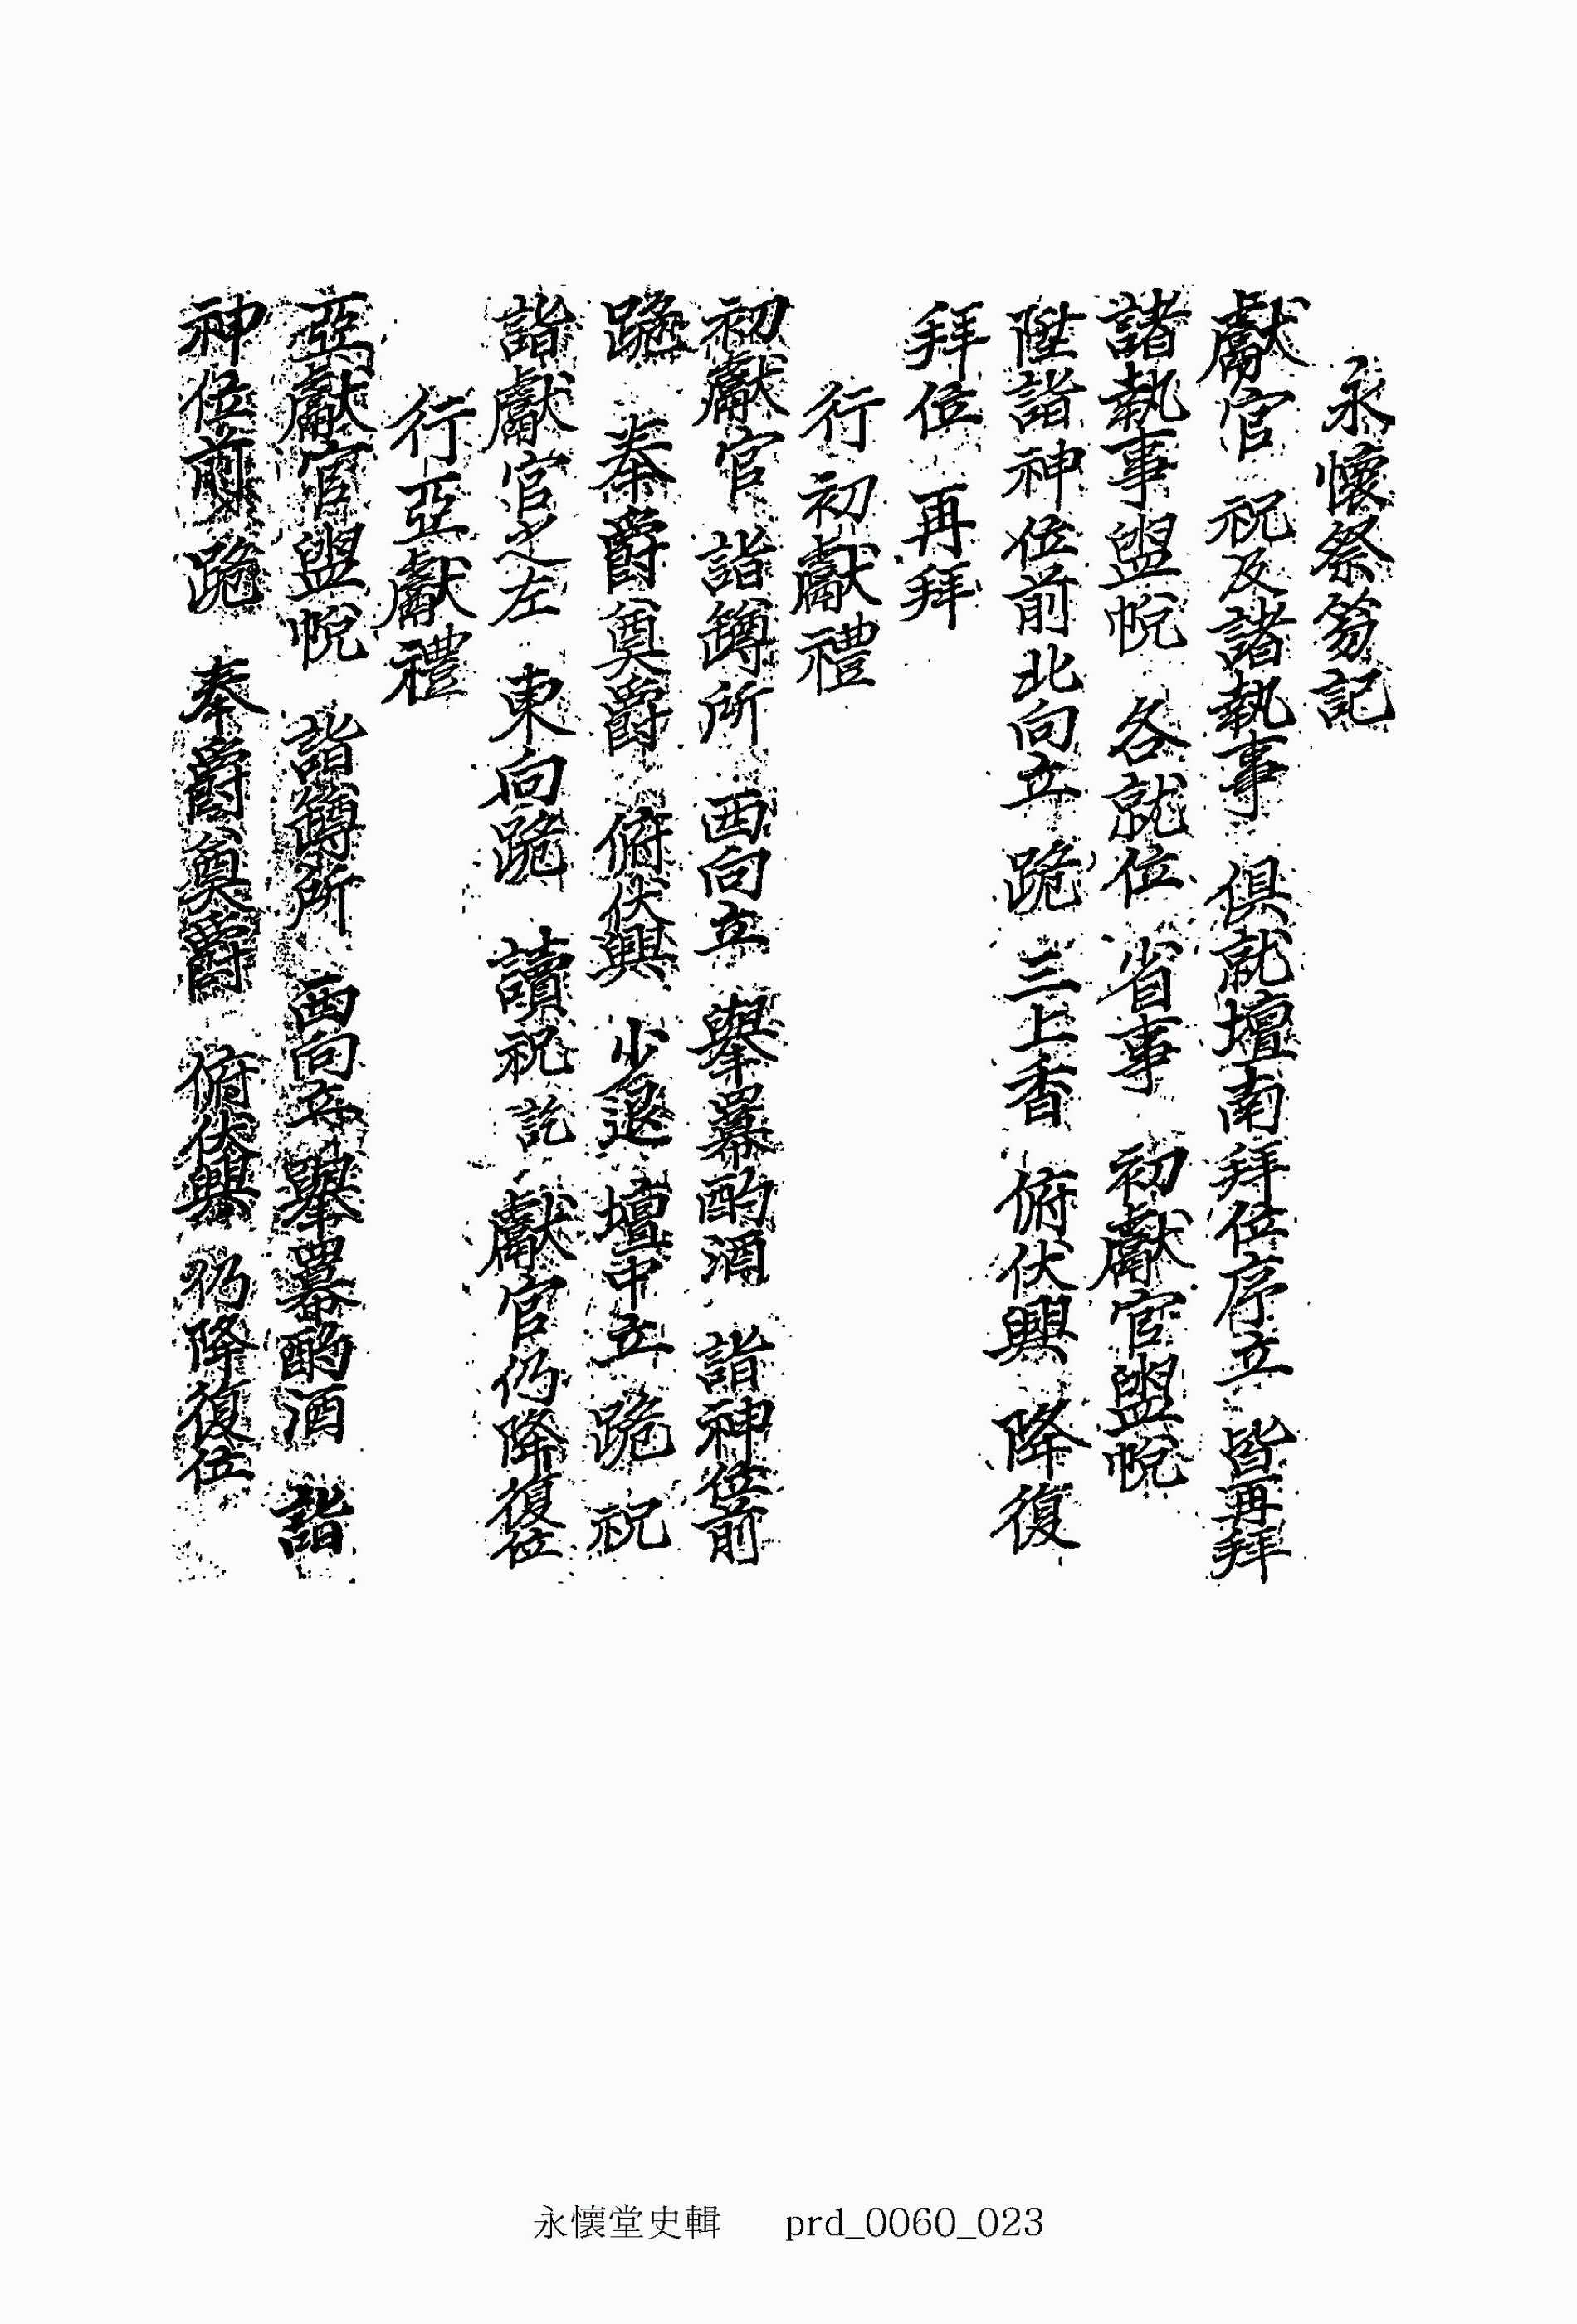 永懷祭笏記
獻官 祝及諸執事 俱就壇南拜位序立 皆再拜
諸執事盥帨 各就位 省事 初獻官盥帨
陞詣神位前北向立 跪 三上香 俯伏興 降復
拜位 再拜
行初獻禮
初獻官 詣罇所 西向立 擧冪酌酒 詣神位前
跪 奉爵奠爵 俯伏興 少退 壇中立 跪 祝
詣獻官之左 東向跪 讀祝 訖 獻官仍降復位
行亞獻禮
亞獻官盥帨 詣罇所 西向立 擧冪酌酒 詣
神位前 跪 奉爵奠爵 俯伏興 仍降復位
永懷堂史輯 prd_0060_023